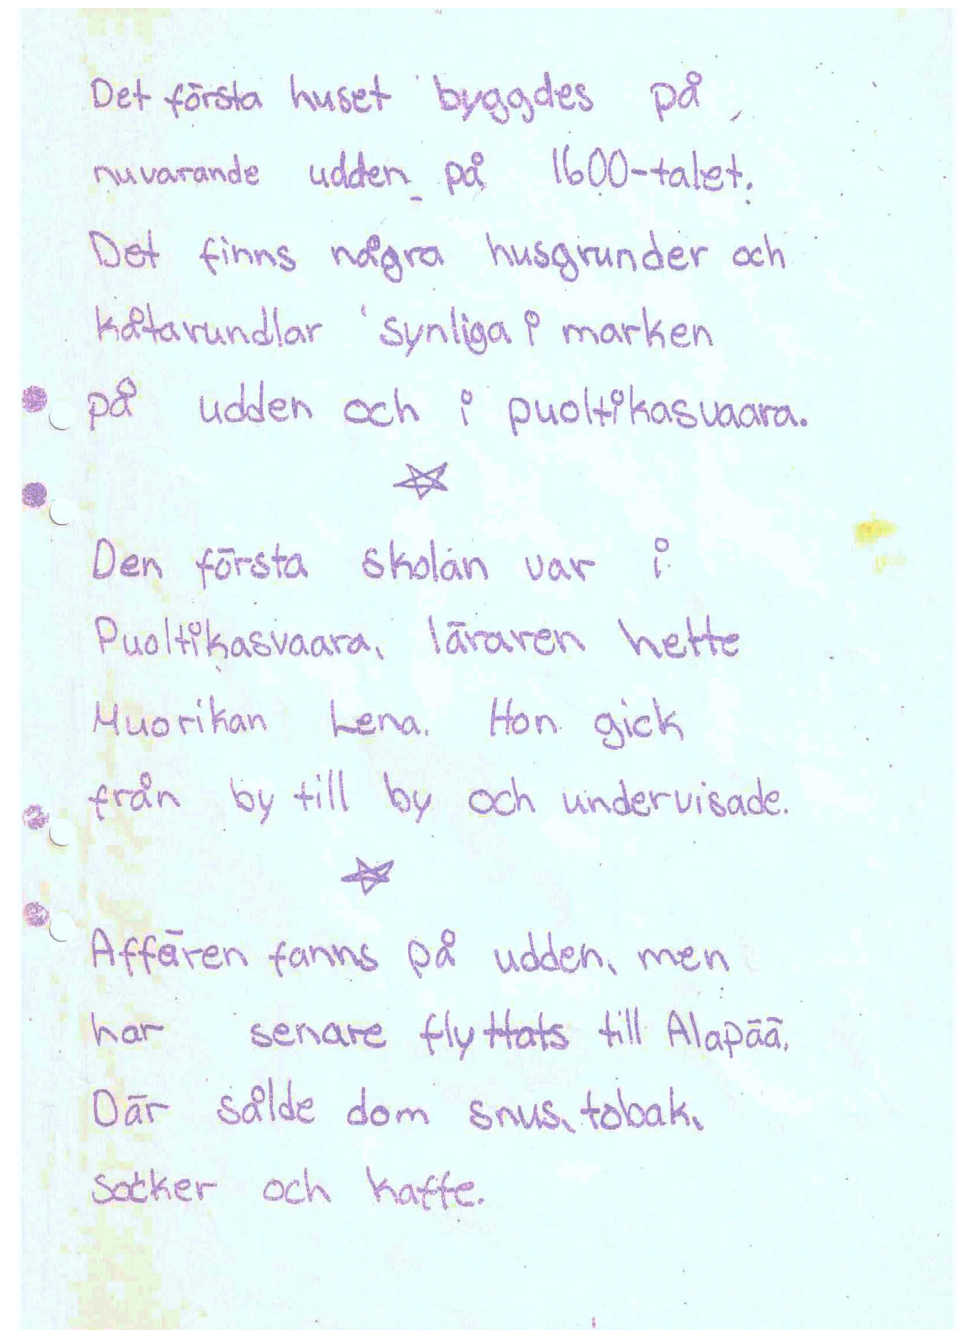 Det första huset byggdes på
nuvarande udden på 1600-talet.
Det finns några husgrunder och
kåtarundlar synliga i marken
på udden och i puoltikasvaara.
Den första skolan var i
Puoltikasvaara, läraren hette
Muorikan Lena. Hon gick
från by till by och undervisade.
Affären fanns på udden, men
har senare flyttats till Alapää.
Där sålde dom snus, tobak,
socker och kaffe.